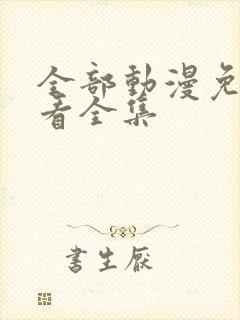 全部動漫免
看全集
書生厭